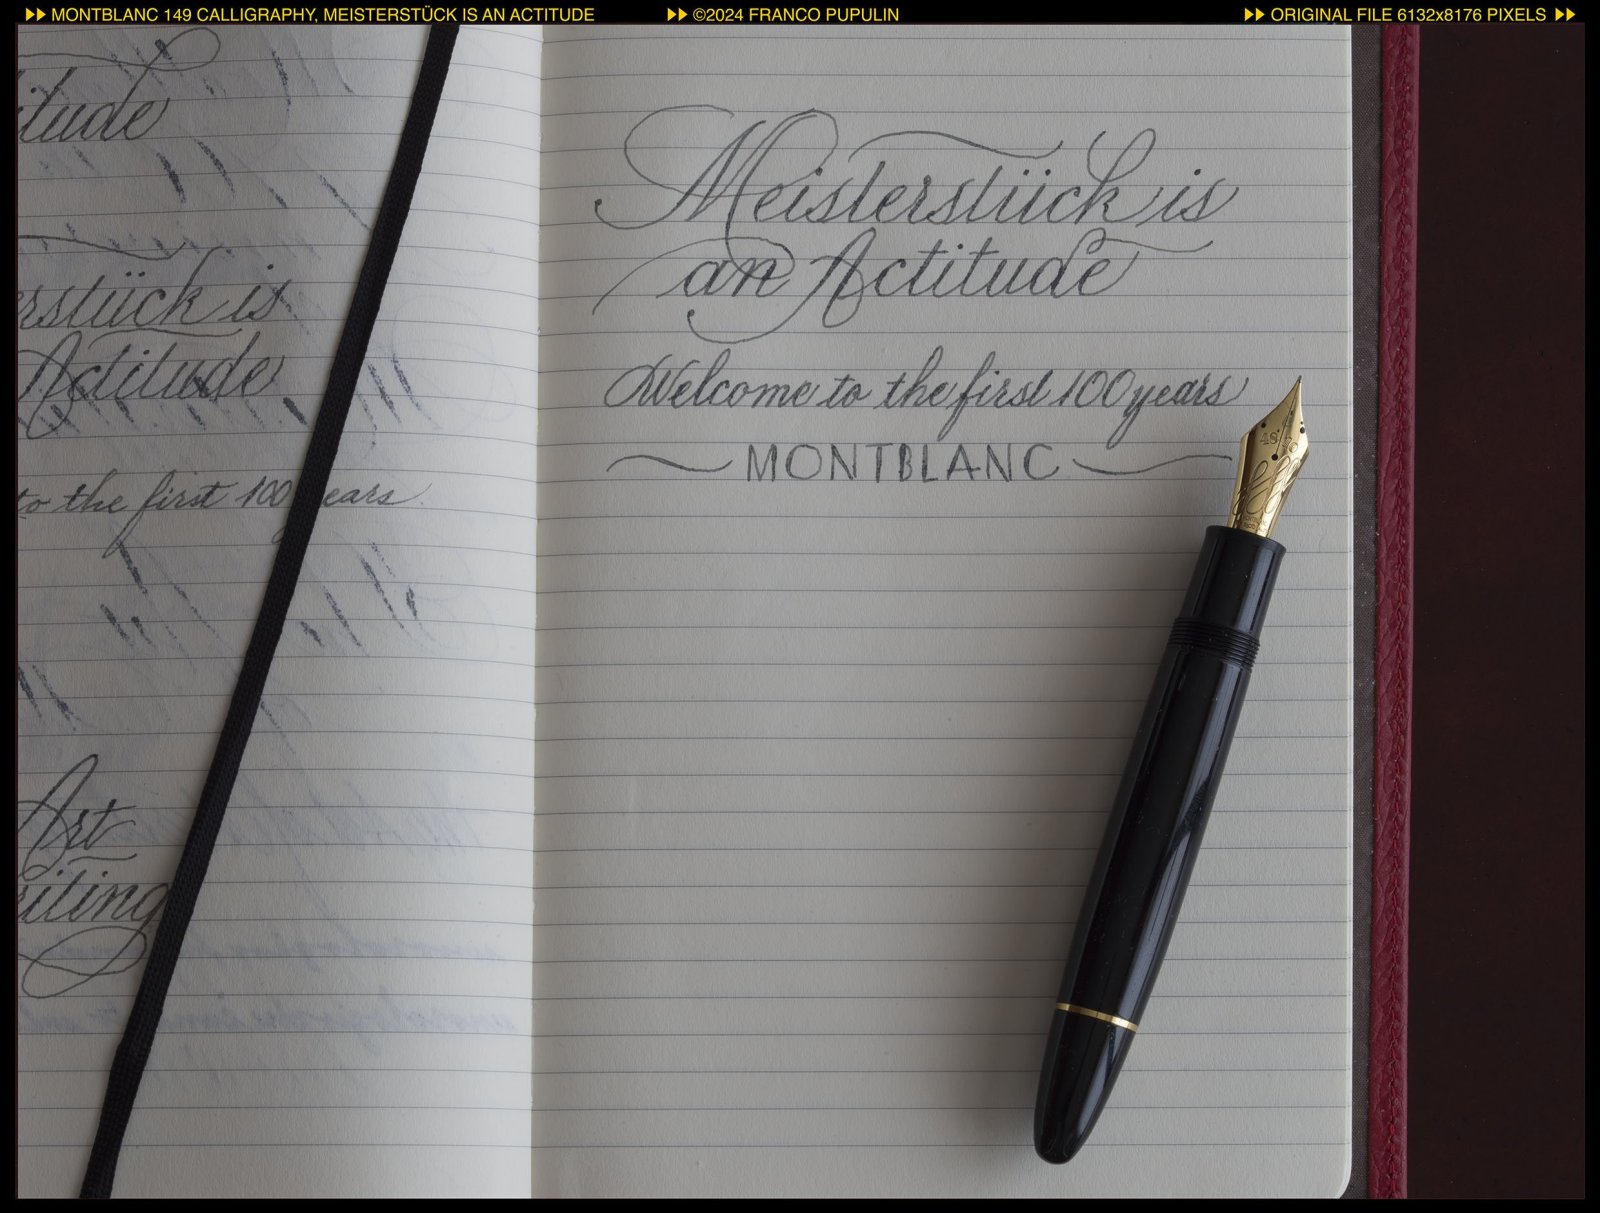 MONTBLANC 149 CALLIGRAPHY, MEISTERSTÜCK IS AN ACTITUDE
©2024 FRANCO PUPULIN
ORIGINAL FILE 6132x8176 PIXELS
itude
erstück is
Actitude
to the first 100 years
Art
riting
Meisterstück is
an Actitude
Welcome to the first 100 years
MONTBLANC